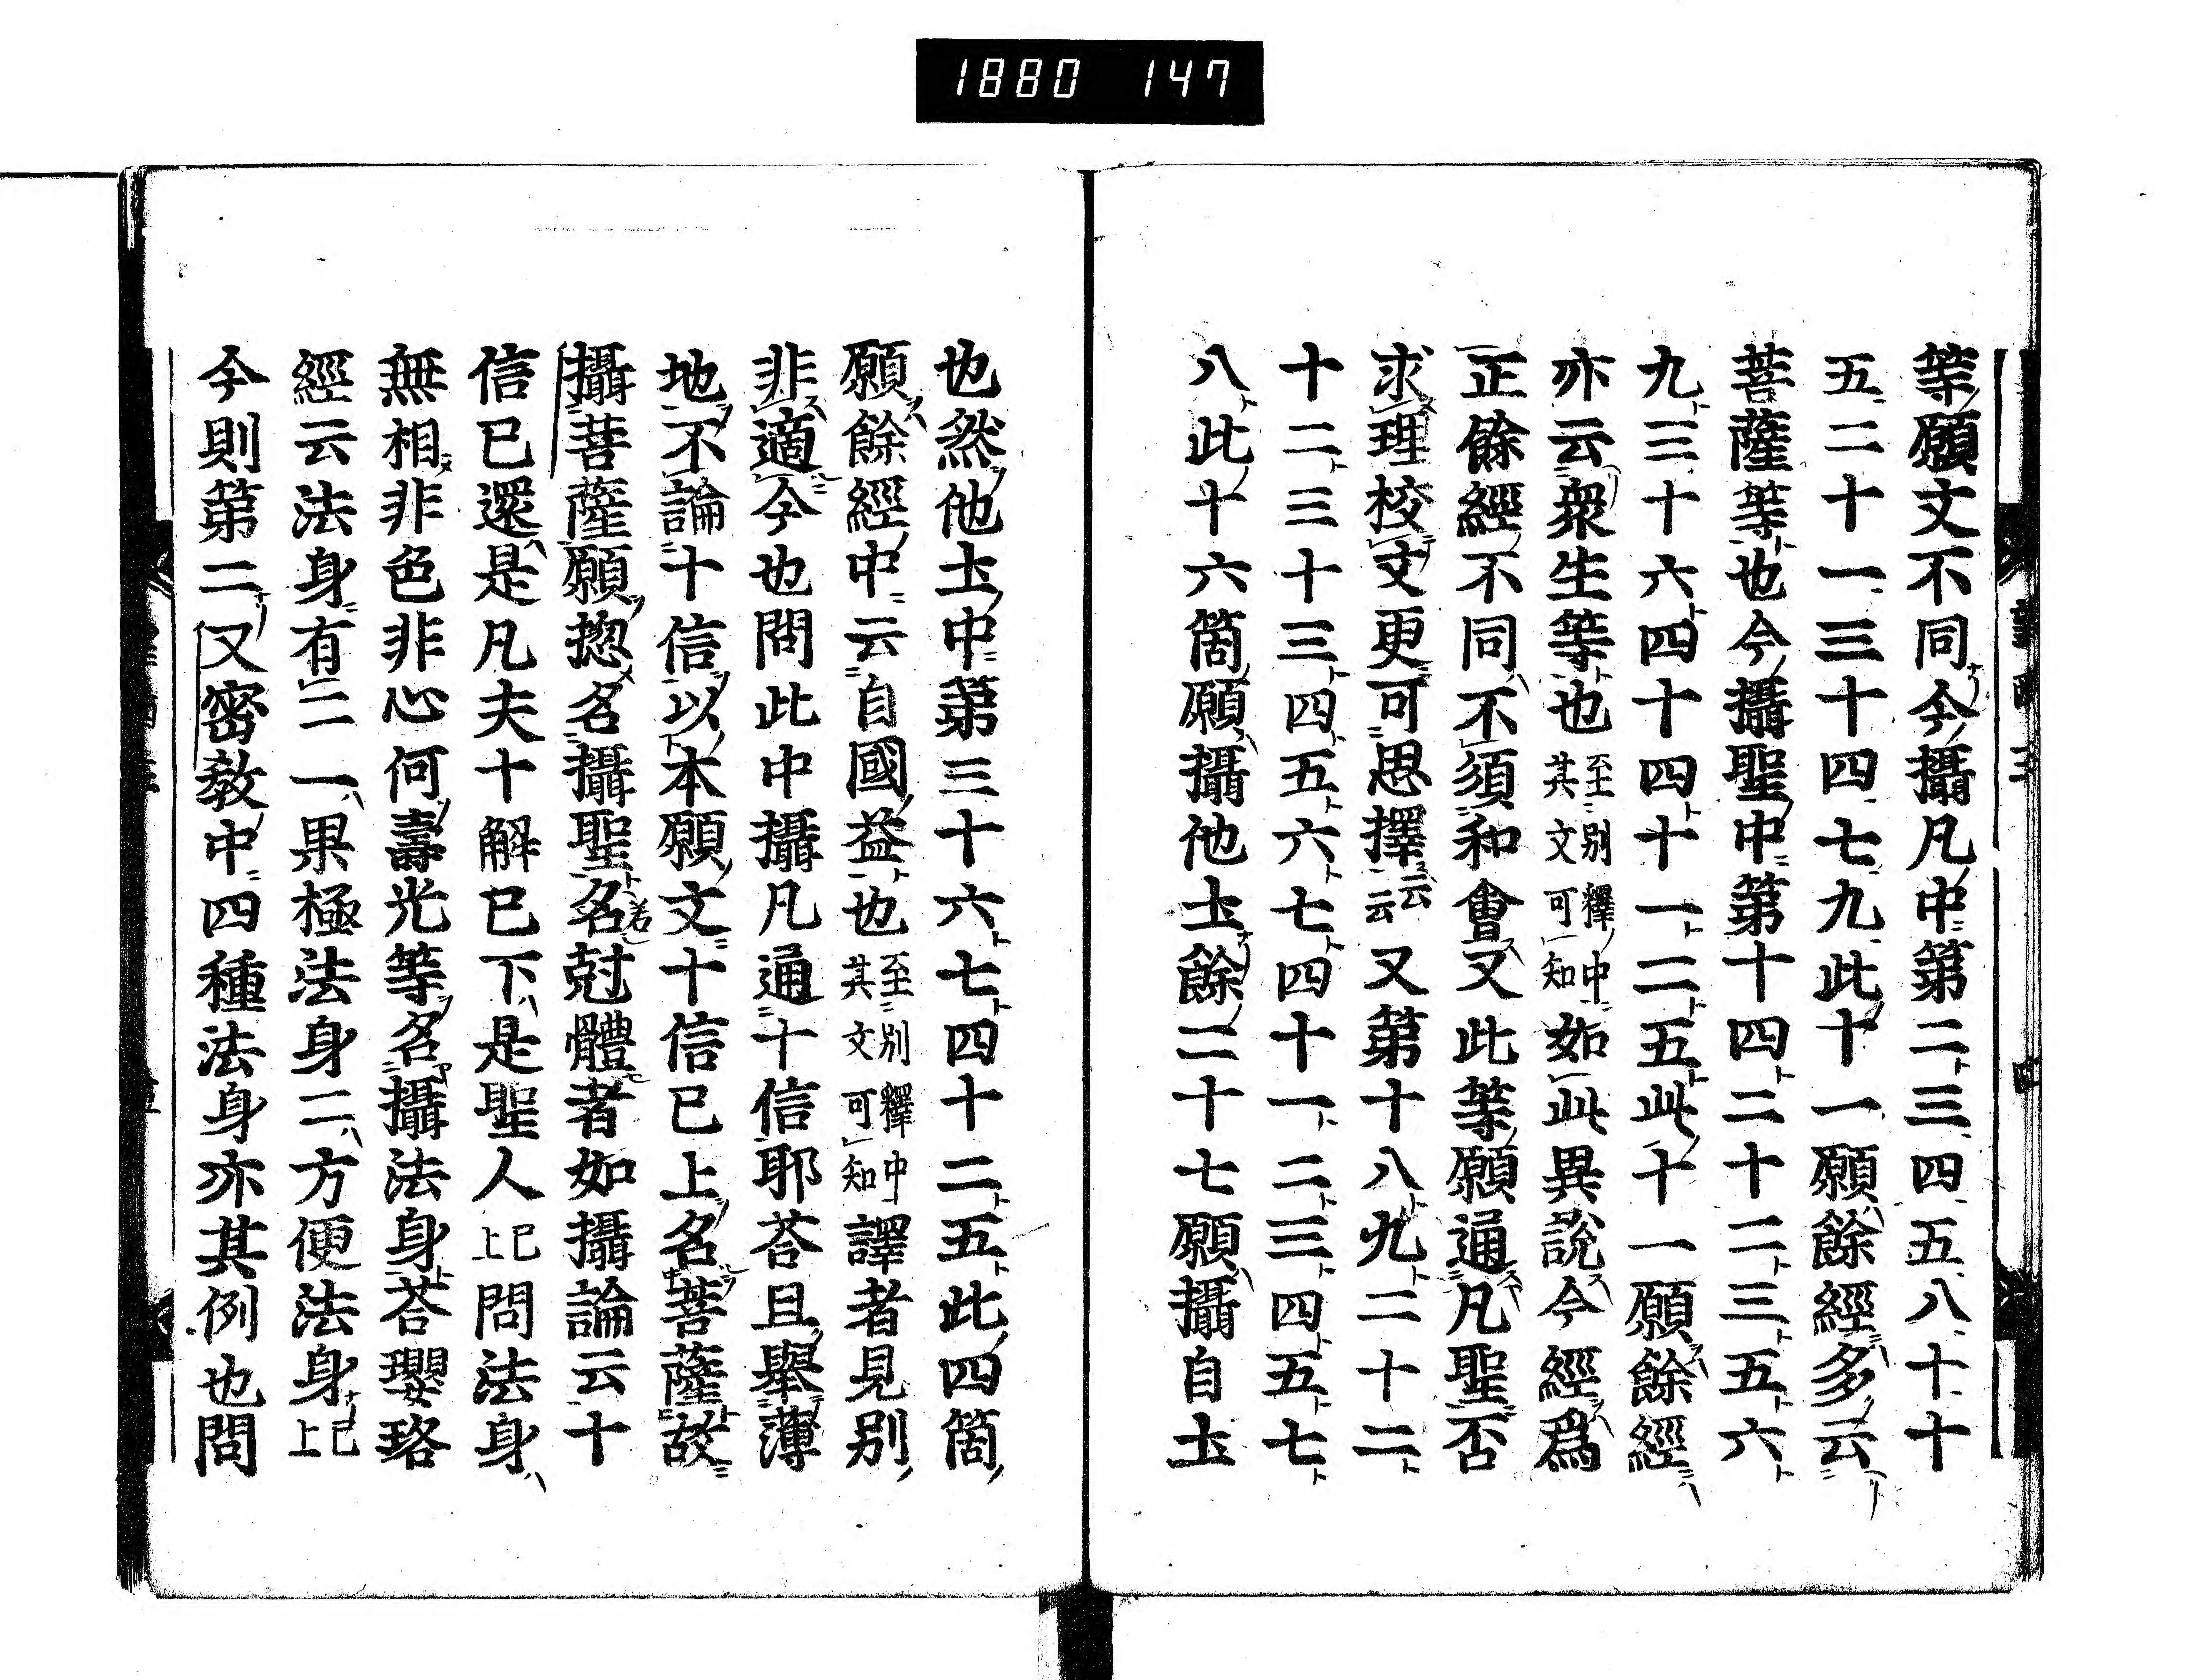 1880 147
等願文不同今攝凡中第二三四五八十十
五二十一三十四七九此十一願餘經多云
菩薩等也今攝聖中第十四二十二三五六
九三十六四十四十一二五此十一願餘經
亦云衆生等也至其文可知別釋中如此異說今經爲
正餘經不同不須和會又此等願通凡聖否
求理校文更可思擇云云又第十八九二十二
十二三十三四五六七四十一二三四五七
八此十六箇願攝他土餘二十七願攝自土
也然他土中第三十六七四十二五此四箇
願餘經中云自國益也至別釋中其文可知譯者見別
非適今也問此中攝凡通十信耶荅且舉薄
地不論十信以本願文十信已上名菩薩故
攝菩薩願揔名攝聖名尅體者如攝論云十
信已還是凡夫十解已下是聖人已上問法身
無相非色非心何壽光等名攝法身荅瓔珞
經云法身有二一果極法身二方便法身已上
今則第二又密教中四種法身亦其例也問